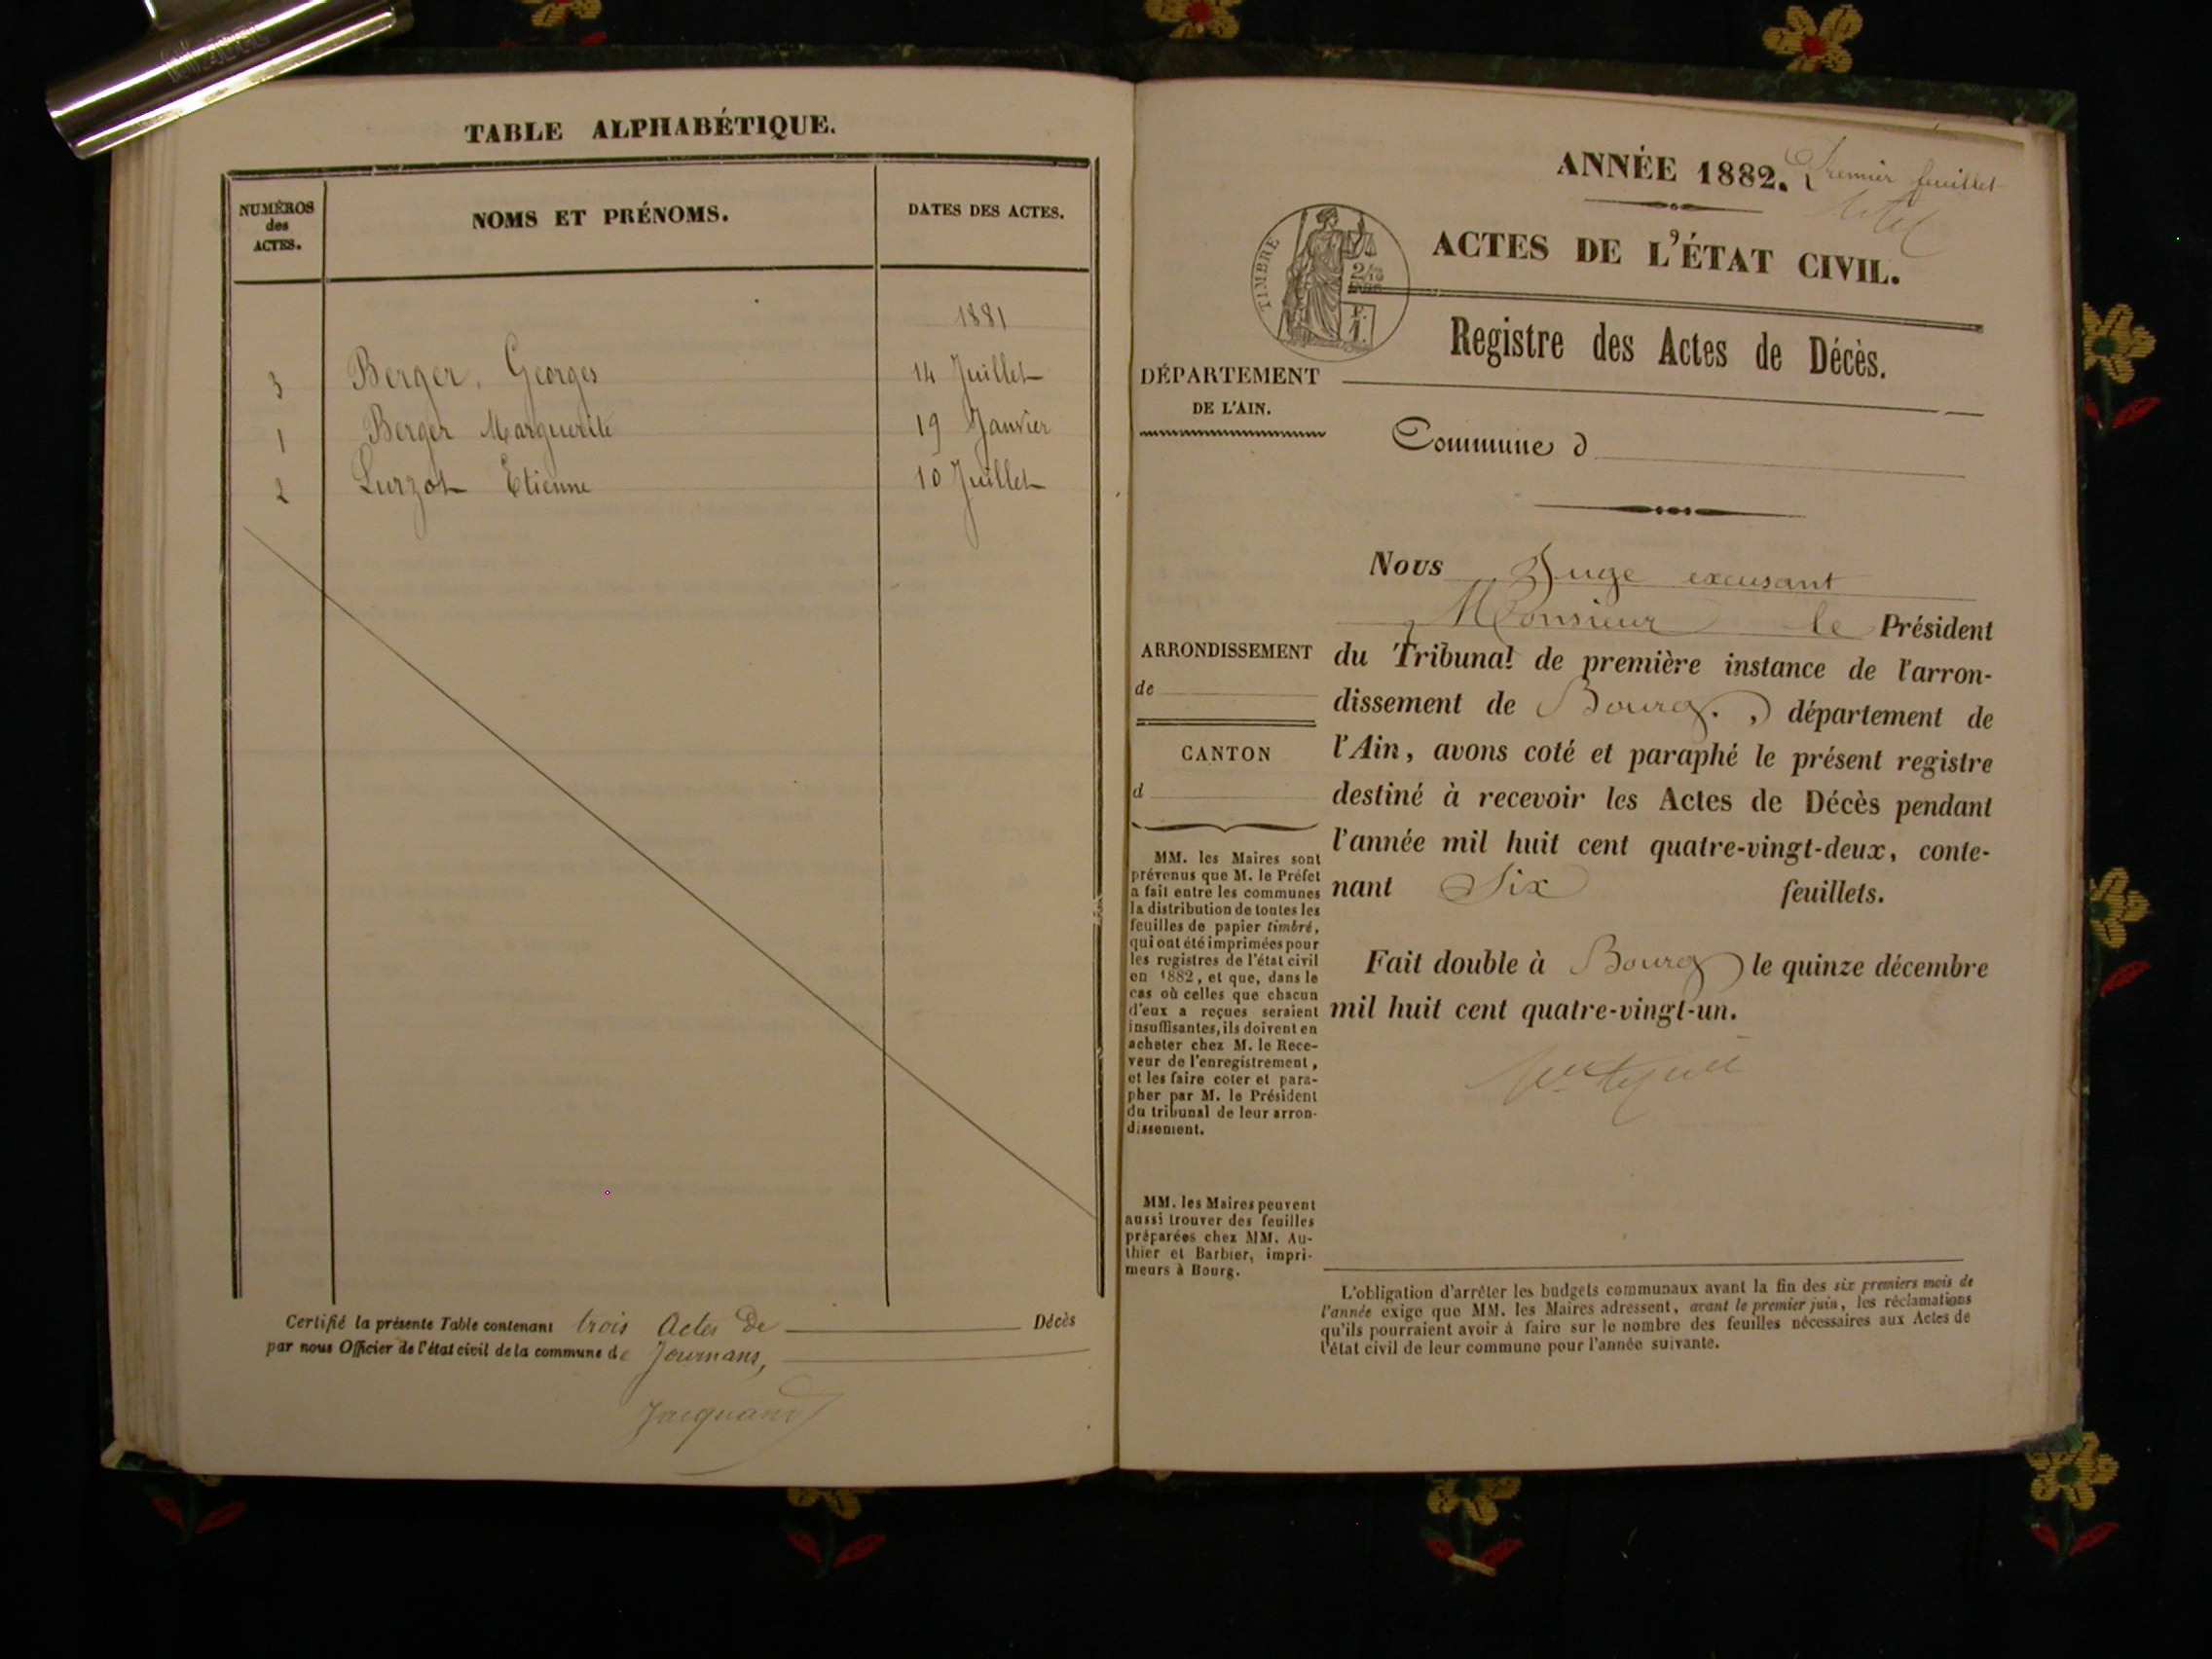 TABLE ALPHABÉTIQUE.
NUMÉROS
des
ACTES.
NOMS ET PRÉNOMS.
DATES DES ACTES.
1881
3 Berger, Georges 14 Juillet
1 Berger Marguerite 19 Janvier
2 Lurzot Etienne 10 Juillet
Certifié la présente Table contenant trois Actes De Décès
par nous Officier de l'état civil de la commune de Journans,
Jacquand
ANNÉE 1882. Premier feuillet
ACTES DE L'ÉTAT CIVIL.
TIMBRE
Registre des Actes de Décès.
DÉPARTEMENT
DE L'AIN.
Commune d
Nous Juge excusant
Monsieur le Président
du Tribunal de première instance de l'arron-
dissement de Bourg. , département de
l'Ain, avons coté et paraphé le présent registre
destiné à recevoir les Actes de Décès pendant
l'année mil huit cent quatre-vingt-deux, conte-
nant Six feuillets.
Fait double à Bourg le quinze décembre
mil huit cent quatre-vingt-un.
ARRONDISSEMENT
de
CANTON
d
MM. les Maires sont
prévenus que M. le Préfet
a fait entre les communes
la distribution de toutes les
feuilles de papier timbré,
qui ont été imprimées pour
les registres de l'état civil
en 1882, et que, dans le
cas où celles que chacun
d'eux a reçues seraient
insuffisantes, ils doivent en
acheter chez M. le Rece-
veur de l'enregistrement,
et les faire coter et para-
pher par M. le Président
du tribunal de leur arron-
dissement.
MM. les Maires peuvent
aussi trouver des feuilles
préparées chez MM. Au-
thier et Barbier, impri-
meurs à Bourg.
L'obligation d'arrêter les budgets communaux avant la fin des six premiers mois de
l'année exige que MM. les Maires adressent, avant le premier juin, les réclamations
qu'ils pourraient avoir à faire sur le nombre des feuilles nécessaires aux Actes de
l'état civil de leur commune pour l'année suivante.